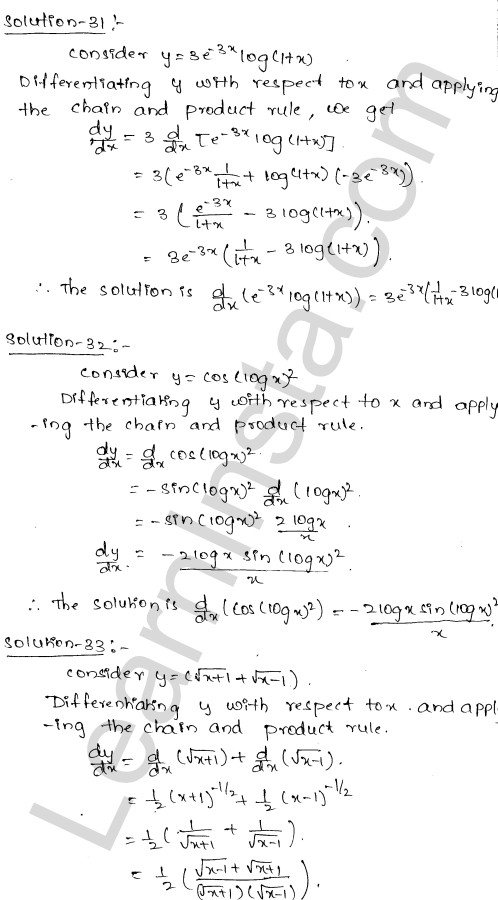 Solution-31:-
Consider y = 3e^-3x log(1+x)
Differentiating y with respect to x and applying
the chain and product rule, we get
dy/dx = 3 d/dx [e^-3x log(1+x)]
= 3(e^-3x 1/1+x + log(1+x) (-3e^-3x)).
= 3 (e^-3x/1+x - 3 log(1+x)).
= 3e^-3x (1/1+x - 3 log(1+x)).
∴ The solution is d/dx (e^-3x log(1+x)) = 3e^-3x (1/1+x - 3 log(1
Solution-32:-
Consider y = cos(logx)^2
Differentiating y with respect to x and apply
-ing the chain and product rule.
dy/dx = d/dx cos(logx)^2.
= -sin(logx)^2 d/dx (logx)^2.
= -sin(logx)^2 2logx/x .
dy/dx = -2logx sin(logx)^2/x.
∴ The solution is d/dx (cos(logx)^2) = -2logx sin(logx)^2/x
Solution-33:-
Consider y = (√x+1 + √x-1).
Differentiating y with respect to x. and appl
-ing the chain and product rule.
dy/dx = d/dx (√x+1) + d/dx (√x-1).
= 1/2 (x+1)^-1/2 + 1/2 (x-1)^-1/2
= 1/2 (1/√x+1 + 1/√x-1).
= 1/2 (√x-1 + √x+1/(√x+1)(√x-1)).
LearnInsta.com